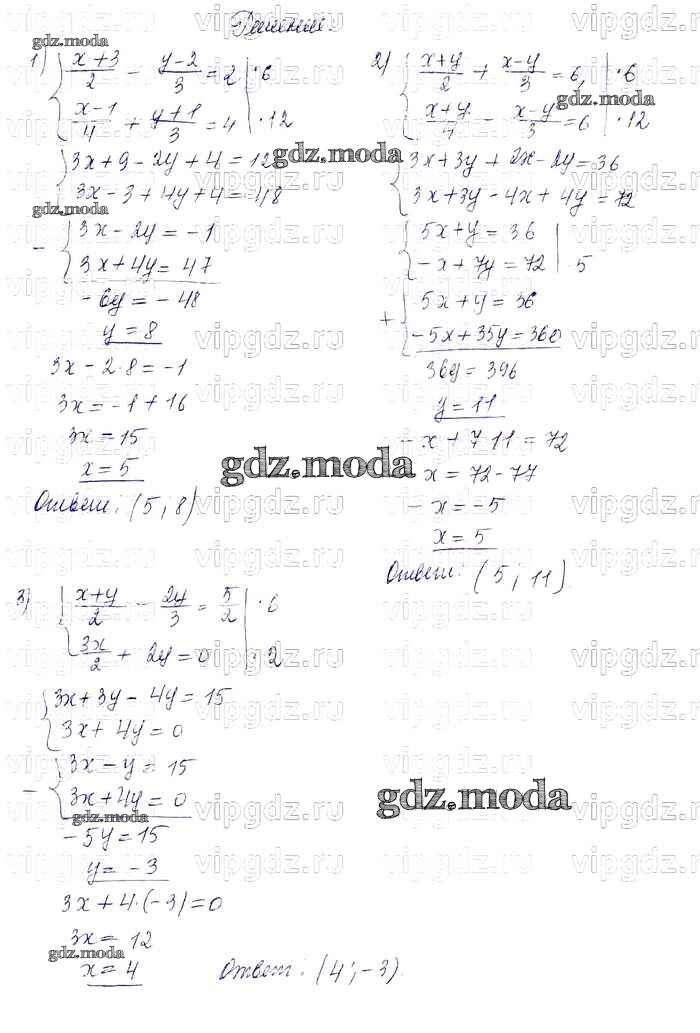 Решение.
1) { (x+3)/2 - (y-2)/3 = 2 | ·6
(x-1)/4 + (y+1)/3 = 4 | ·12
{ 3x+9-2y+4=12
3x-3+4y+4=48
- { 3x-2y=-1
3x+4y=47
-6y=-48
y=8
3x-2·8=-1
3x=-1+16
3x=15
x=5
Ответ: (5; 8)
2) { (x+y)/2 + (x-y)/3 = 6, | ·6
(x+y)/4 - (x-y)/3 = 6 | ·12
{ 3x+3y+2x-2y=36
3x+3y-4x+4y=72
{ 5x+y=36
-x+7y=72 | 5
+ { 5x+y=36
-5x+35y=360
36y=396
y=11
-x+7·11=72
-x=72-77
-x=-5
x=5
Ответ: (5; 11)
3) { (x+y)/2 - 2y/3 = 5/2 | ·6
3x/2 + 2y=0 | ·2
{ 3x+3y-4y=15
3x+4y=0
- { 3x-y=15
3x+4y=0
-5y=15
y=-3
3x+4·(-3)=0
3x=12
x=4
Ответ: (4; -3).
gdz.moda
vipgdz.ru